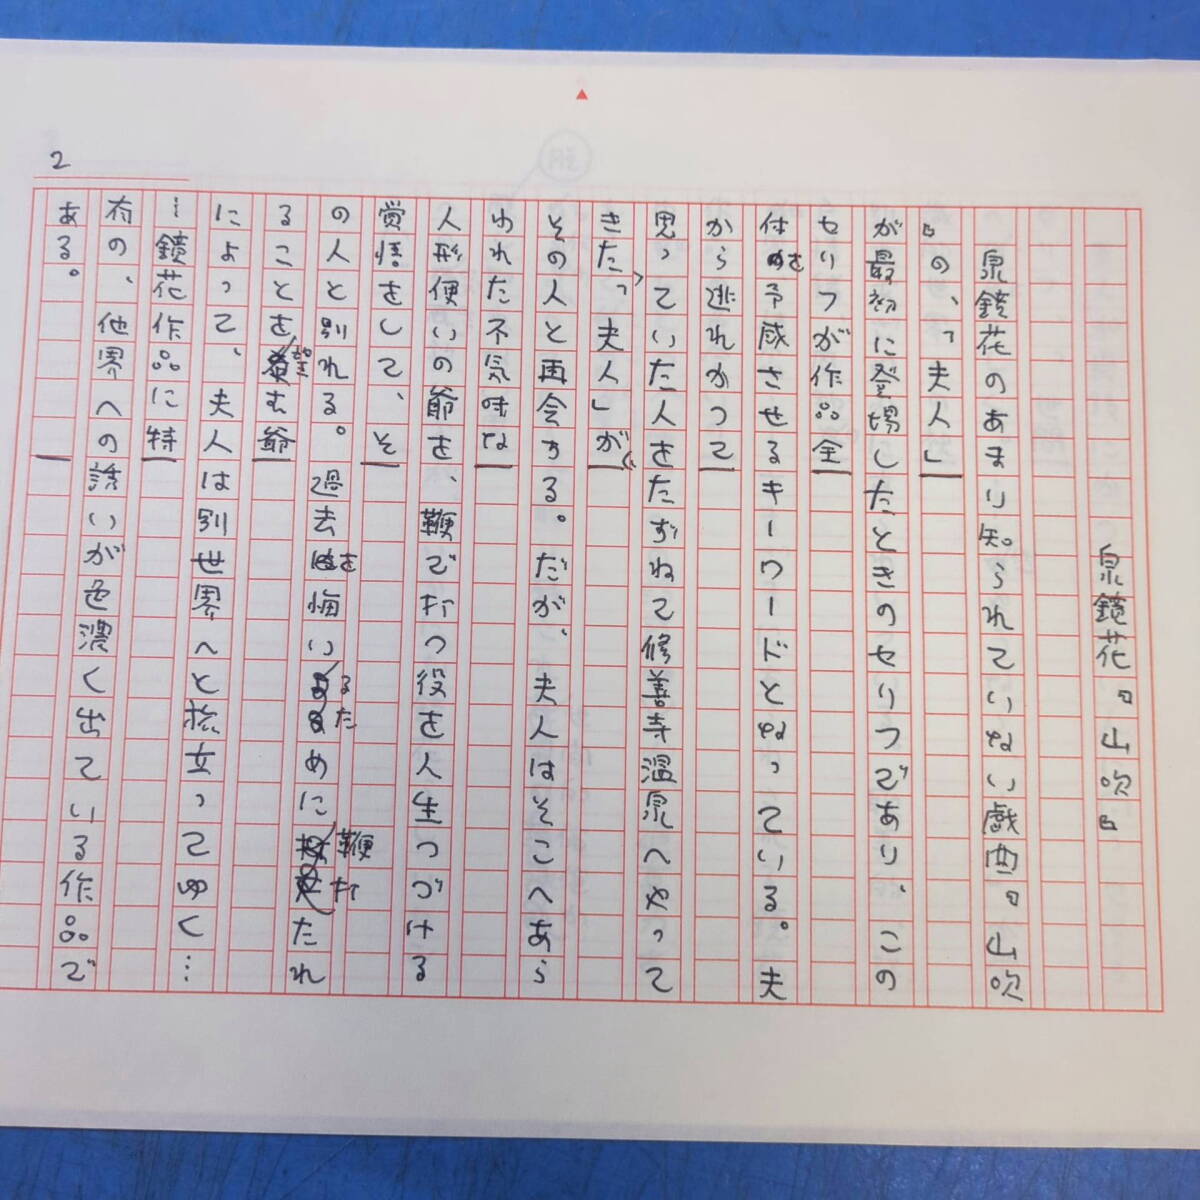 2
泉鏡花『山吹』
泉鏡花のあまり知られていない戯曲『山吹
』の、「夫人」
が最初に登場したときのセリフであり、この
セリフが作品全
体を予感させるキーワードとなっている。夫
から逃れかつて
思っていた人をたずねて修善寺温泉へやって
きた、「夫人」が
その人と再会する。だが、夫人はそこへあら
われた不気味な
人形使いの爺を、鞭で打つ役を人生つづける
覚悟をして、そ
の人と別れる。過去を悔いるために鞭打たれ
ることを望む爺
によって、夫人は別世界へと旅立ってゆく…
…鏡花作品に特
有の、他界への誘いが色濃く出ている作品で
ある。